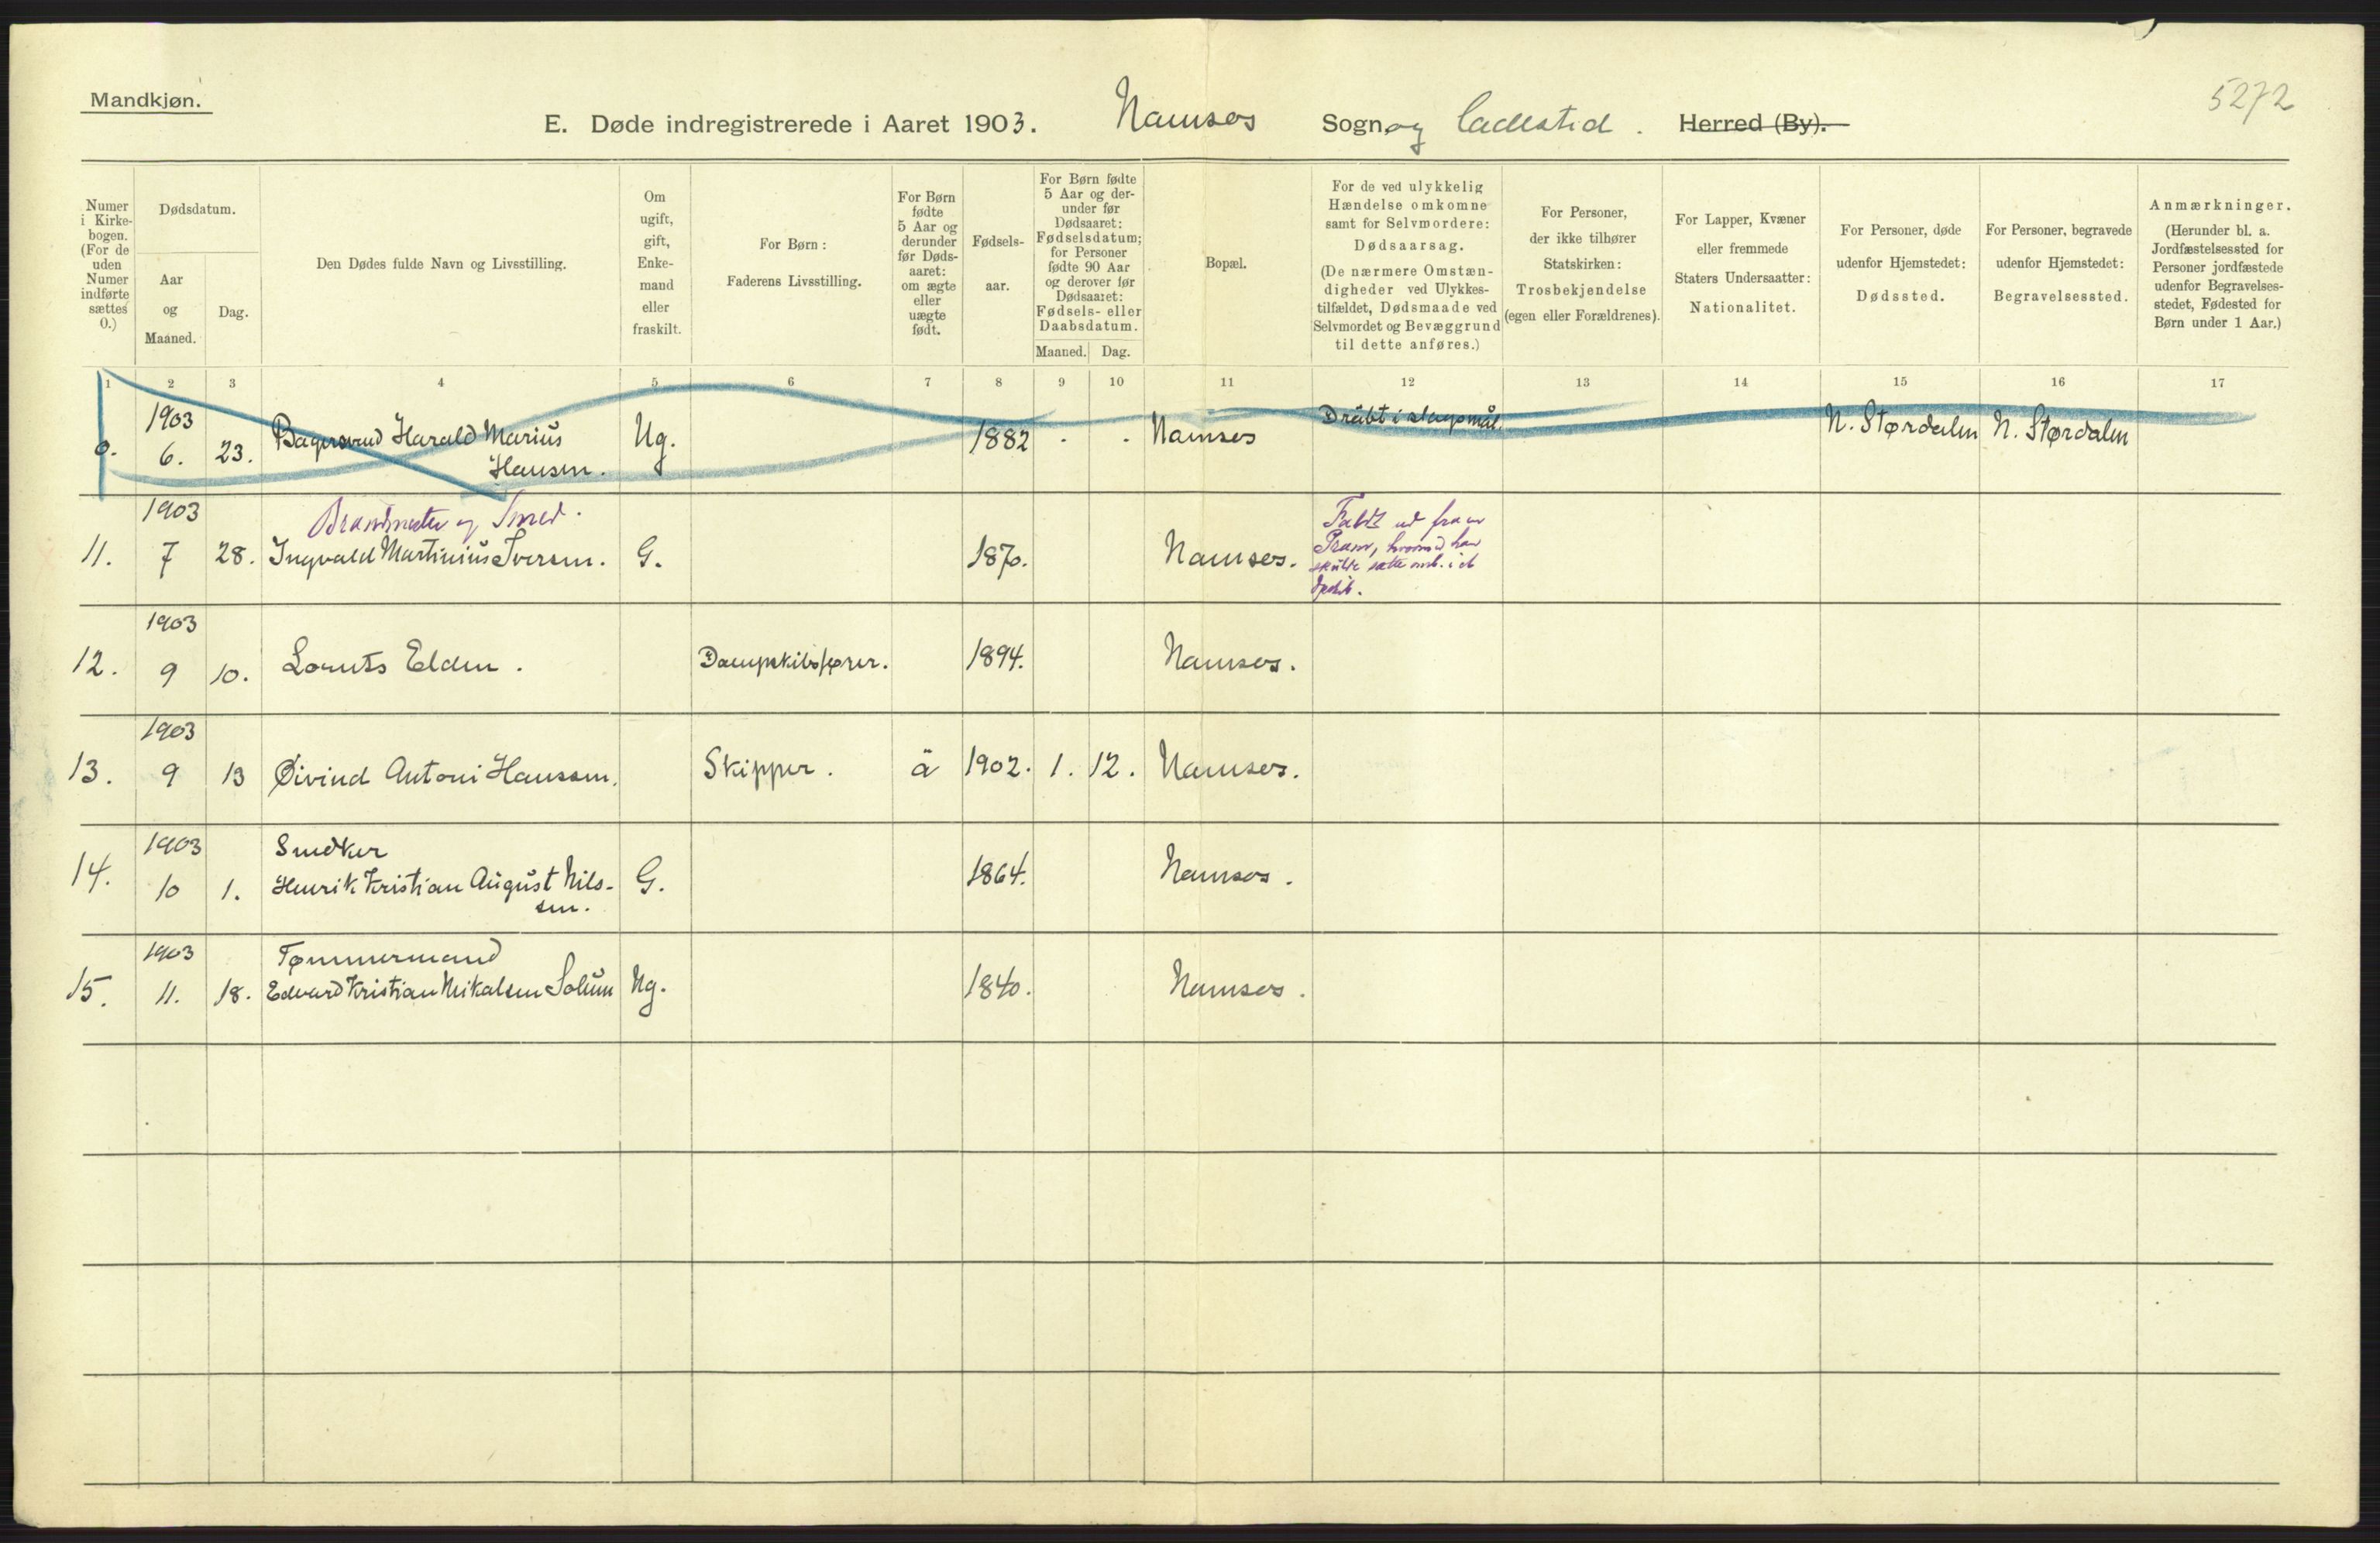 Mandkjøn.
5272
E. Døde indregistrerede i Aaret 1903. Namsos Sogn og Ladested. Herred (By).
Numer i Kirkebogen. (For de uden Numer indførte sættes 0.)
Dødsdatum.
Aar og Maaned.
Dag.
Den Dødes fulde Navn og Livsstilling.
Om ugift, gift, Enkemand eller fraskilt.
For Børn: Faderens Livsstilling.
For Børn fødte 5 Aar og derunder før Dødsaaret: om ægte eller uægte født.
Fødselsaar.
For Børn fødte 5 Aar og derunder før Dødsaaret: Fødselsdatum; for Personer fødte 90 Aar og derover før Dødsaaret: Fødsels- eller Daabsdatum.
Maaned. Dag.
Bopæl.
For de ved ulykkelig Hændelse omkomne samt for Selvmordere: Dødsaarsag. (De nærmere Omstændigheder ved Ulykkestilfældet, Dødsmaade ved Selvmordet og Bevæggrund til dette anføres.)
For Personer, der ikke tilhører Statskirken: Trosbekjendelse (egen eller Forældrenes).
For Lapper, Kvæner eller fremmede Staters Undersaatter: Nationalitet.
For Personer, døde udenfor Hjemstedet: Dødssted.
For Personer, begravede udenfor Hjemstedet: Begravelsessted.
Anmærkninger. (Herunder bl. a. Jordfæstelsessted for Personer jordfæstede udenfor Begravelsesstedet, Fødested for Børn under 1 Aar.)
1 2 3 4 5 6 7 8 9 10 11 12 13 14 15 16 17
0. 1903 6. 23. Bagersvend Harald Marius Hansen. Ug. 1882 . . Namsos Dräbt i slagsmål. N. Størdalen N. Størdalen
11. 1903 7 28. Brandmester og Smed. Ingvald Martinius Iversen. G. 1870. Namsos. Faldt ud fra en Pram, hvormed han skulde sætte
12. 1903 9 10. Lorents Elden. Dampskibsfører. 1894. Namsos.
13. 1903 9 13 Øivind Antoni Hanssen. Skipper. ä 1902. 1. 12. Namsos.
14. 1903 10 1. Snedker Henrik Kristian August Nilssen. G. 1864. Namsos.
15. 1903 11. 18. Tømmermand Edvard Kristian Mikalsen Solum Ug. 1840. Namsos.